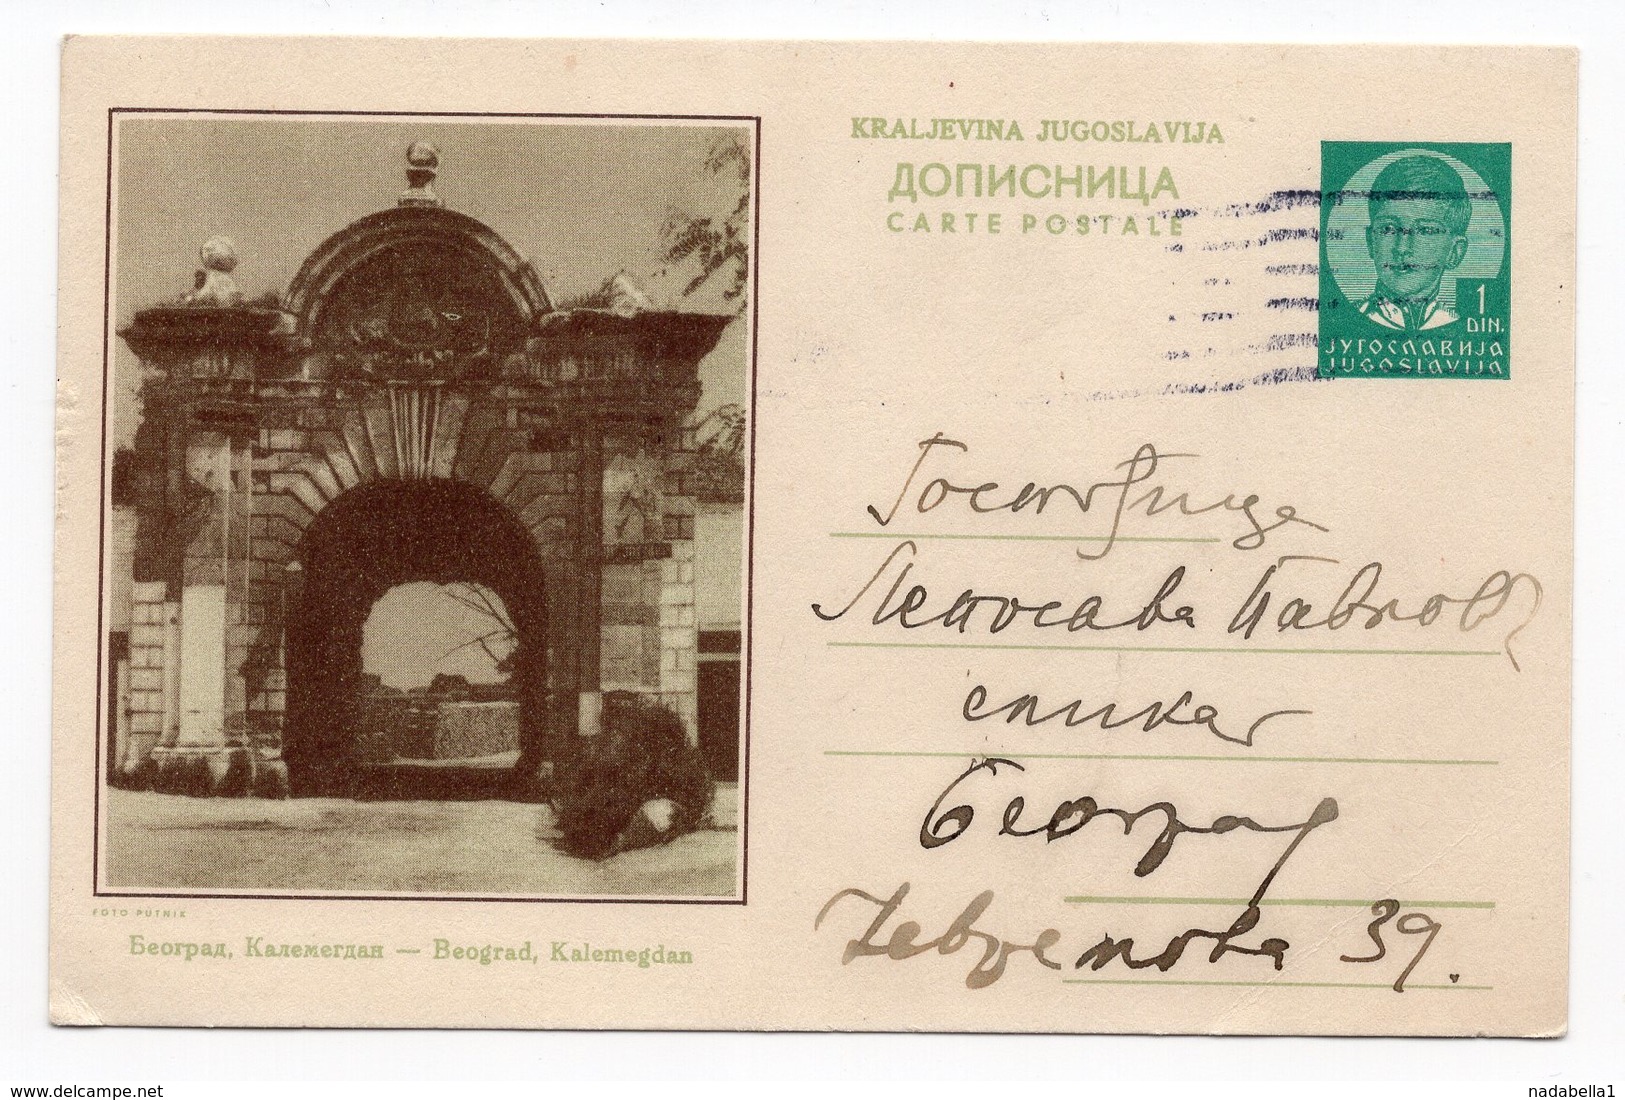 KRALJEVINA JUGOSLAVIJA
ДОПИСНИЦА
CARTE POSTALE
1
DIN.
ЈУГОСЛАВИЈА
JUGOSLAVIJA
Госпођица
Лепосава Павловић
сликар
Београд
Јевремова 39.
FOTO PUTNIK
Београд, Калемегдан — Beograd, Kalemegdan
delcampe.net
nadabella1